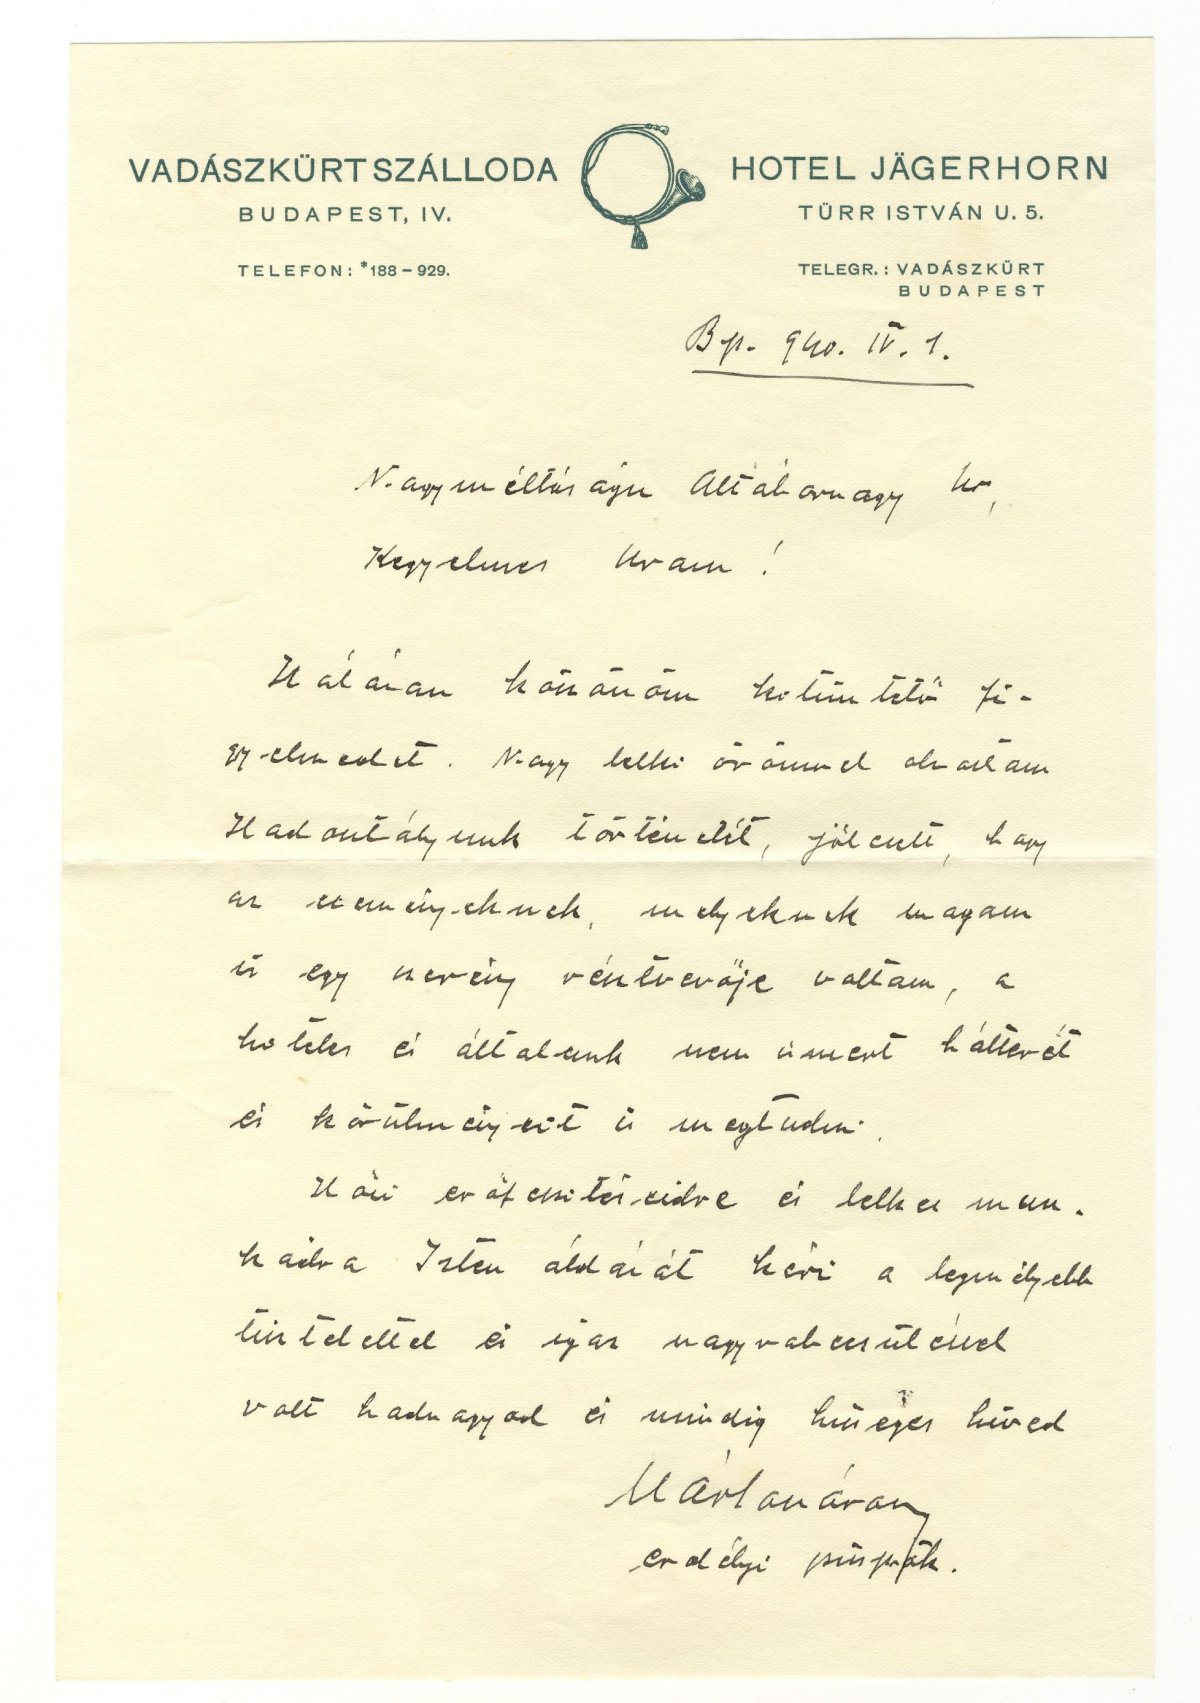 VADÁSZKÜRT SZÁLLODA
BUDAPEST, IV.
TELEFON: *188-929.
HOTEL JÄGERHORN
TÜRR ISTVÁN U. 5.
TELEGR.: VADÁSZKÜRT
BUDAPEST
Bp. 940. IV. 1.
Nagyméltóságu Altábornagy Ur,
Kegyelmes Uram!
Hálásan köszönöm kitüntető fi-
gyelmedet. Nagy lelki örömmel olvastam
Hadosztályunk történetét, jól esett, hogy
az eseményeknek, melyeknek magam
is egy szerény résztvevője voltam, a
hiteles és általunk nem ismert hátterét
és körülményeit is megtudni.
Hősi erőfeszítéseidre és lelkes mun-
kádra Isten áldását kéri a legmélyebb
tisztelettel és igaz nagyrabecsüléssel
volt hadnagyod és mindig hűséges híved
Márton Áron
erdélyi püspök.